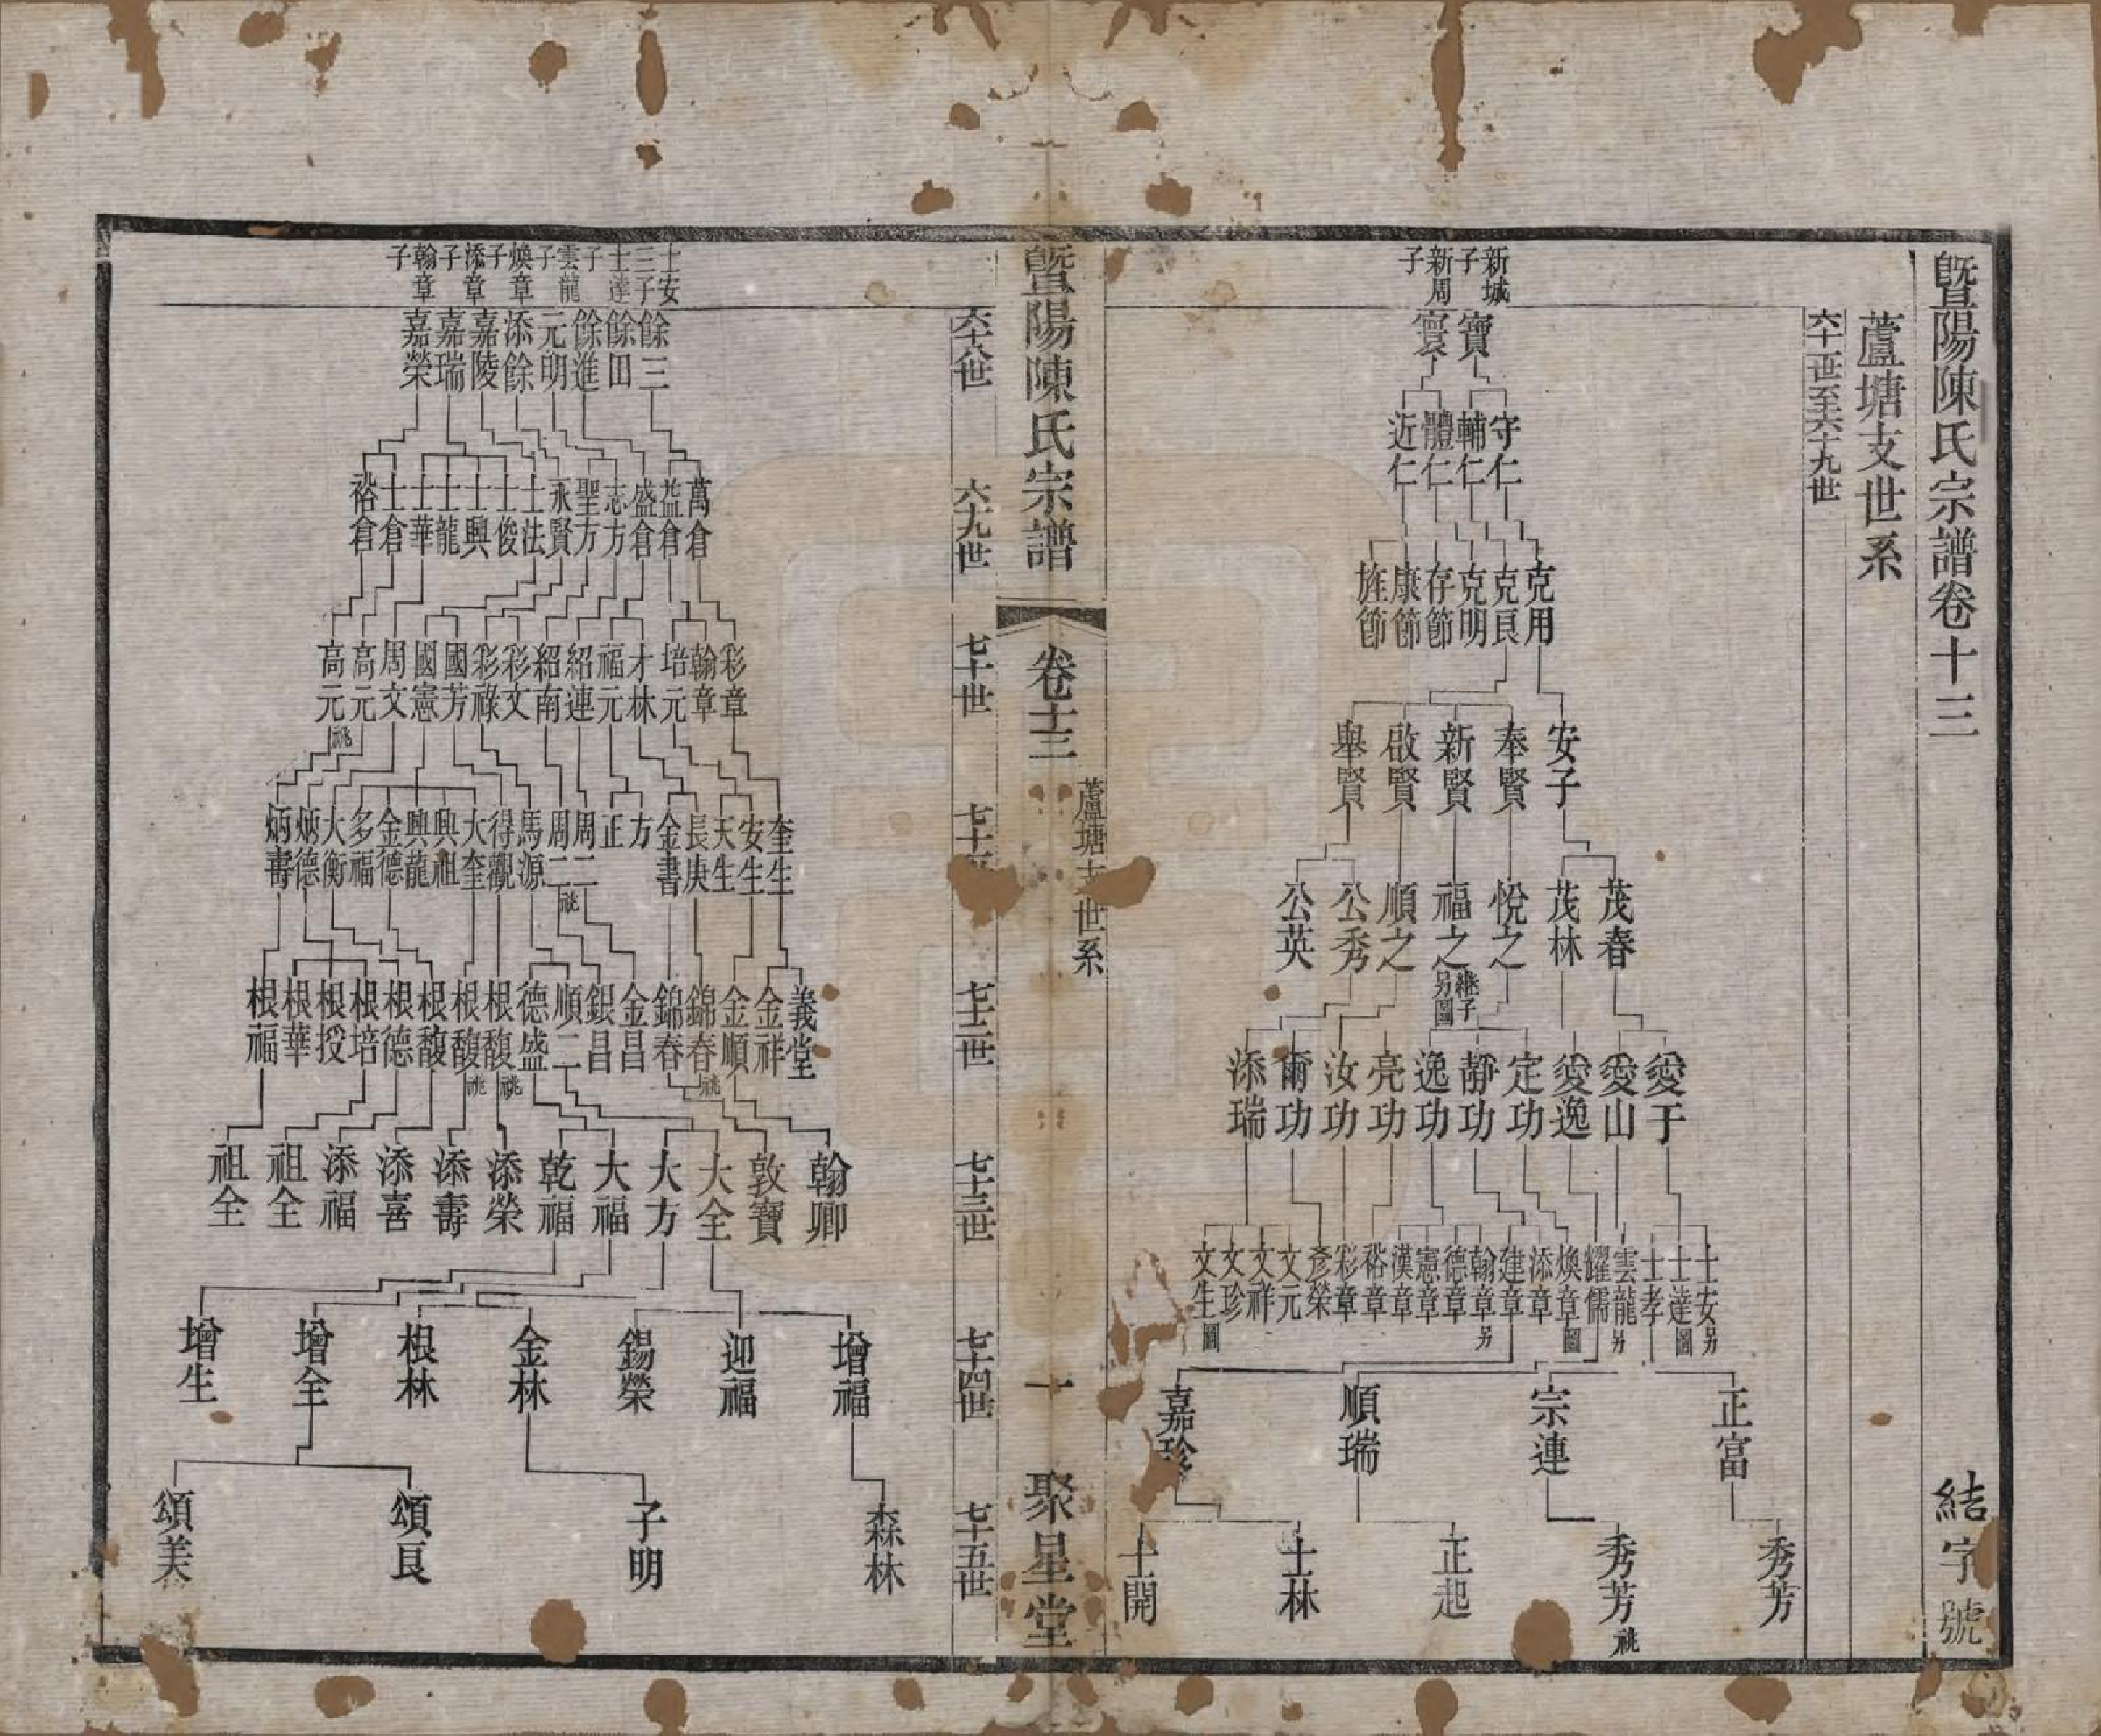 暨陽陳氏宗譜卷十三
結字號
蘆塘支世系
六十一世至六十九世
新城子
新周子
寶
寰
守仁
輔仁
體仁
近仁
克用
克良
克明
存節
康節
旌節
安子
奉賢
新賢
啟賢
舉賢
茂春
茂林
悅之
福之 繼子另圖
順之
公秀
公英
愛于
愛山
愛逸
定功
靜功
逸功
亮功
汝功
爾功
添瑞
士安 另
士達 圖
士孝
雲龍 另
耀儒
煥章 圖
添章
建章
翰章 另
德章
憲章
漢章
裕章
彩章
彥榮
文元
文祥
文珍
文生 圖
正富
宗連
順瑞
嘉珍
秀芳
秀芳 祧
正起
士林
士開
暨陽陳氏宗譜
卷十三
蘆塘支世系
一
聚星堂
六十八世
六十九世
七十世
七十一世
七十二世
七十三世
七十四世
七十五世
士安三子
士達子
雲龍子
煥章子
添章子
翰章子
餘三
餘田
餘進
元明
添餘
嘉陵
嘉瑞
嘉榮
萬倉
益倉
盛倉
志方
聖方
永賢
士法
士俊
士興
士龍
士華
士倉
裕倉
彩章
翰章
培元
才林
福元
紹連
紹南
彩文
彩祿
國芳
國憲
周文
高元
高元 祧
奎生
安生
天生
長庚
金書
方
正
周二
周二 祧
馬源
得觀
大奎
興祖
興龍
金德
多福
大衡
炳德
炳壽
義堂
金祥
金順
錦春 祧
錦春
金昌
銀昌
順二
德盛
根馥 祧
根馥 祧
根馥
根德
根培
根授
根華
根福
翰卿
敦寶
大全
大方
大福
乾福
添榮
添壽
添喜
添福
祖全
祖全
增福
迎福
錫榮
金林
根林
增全
增生
森林
子明
頌良
頌美